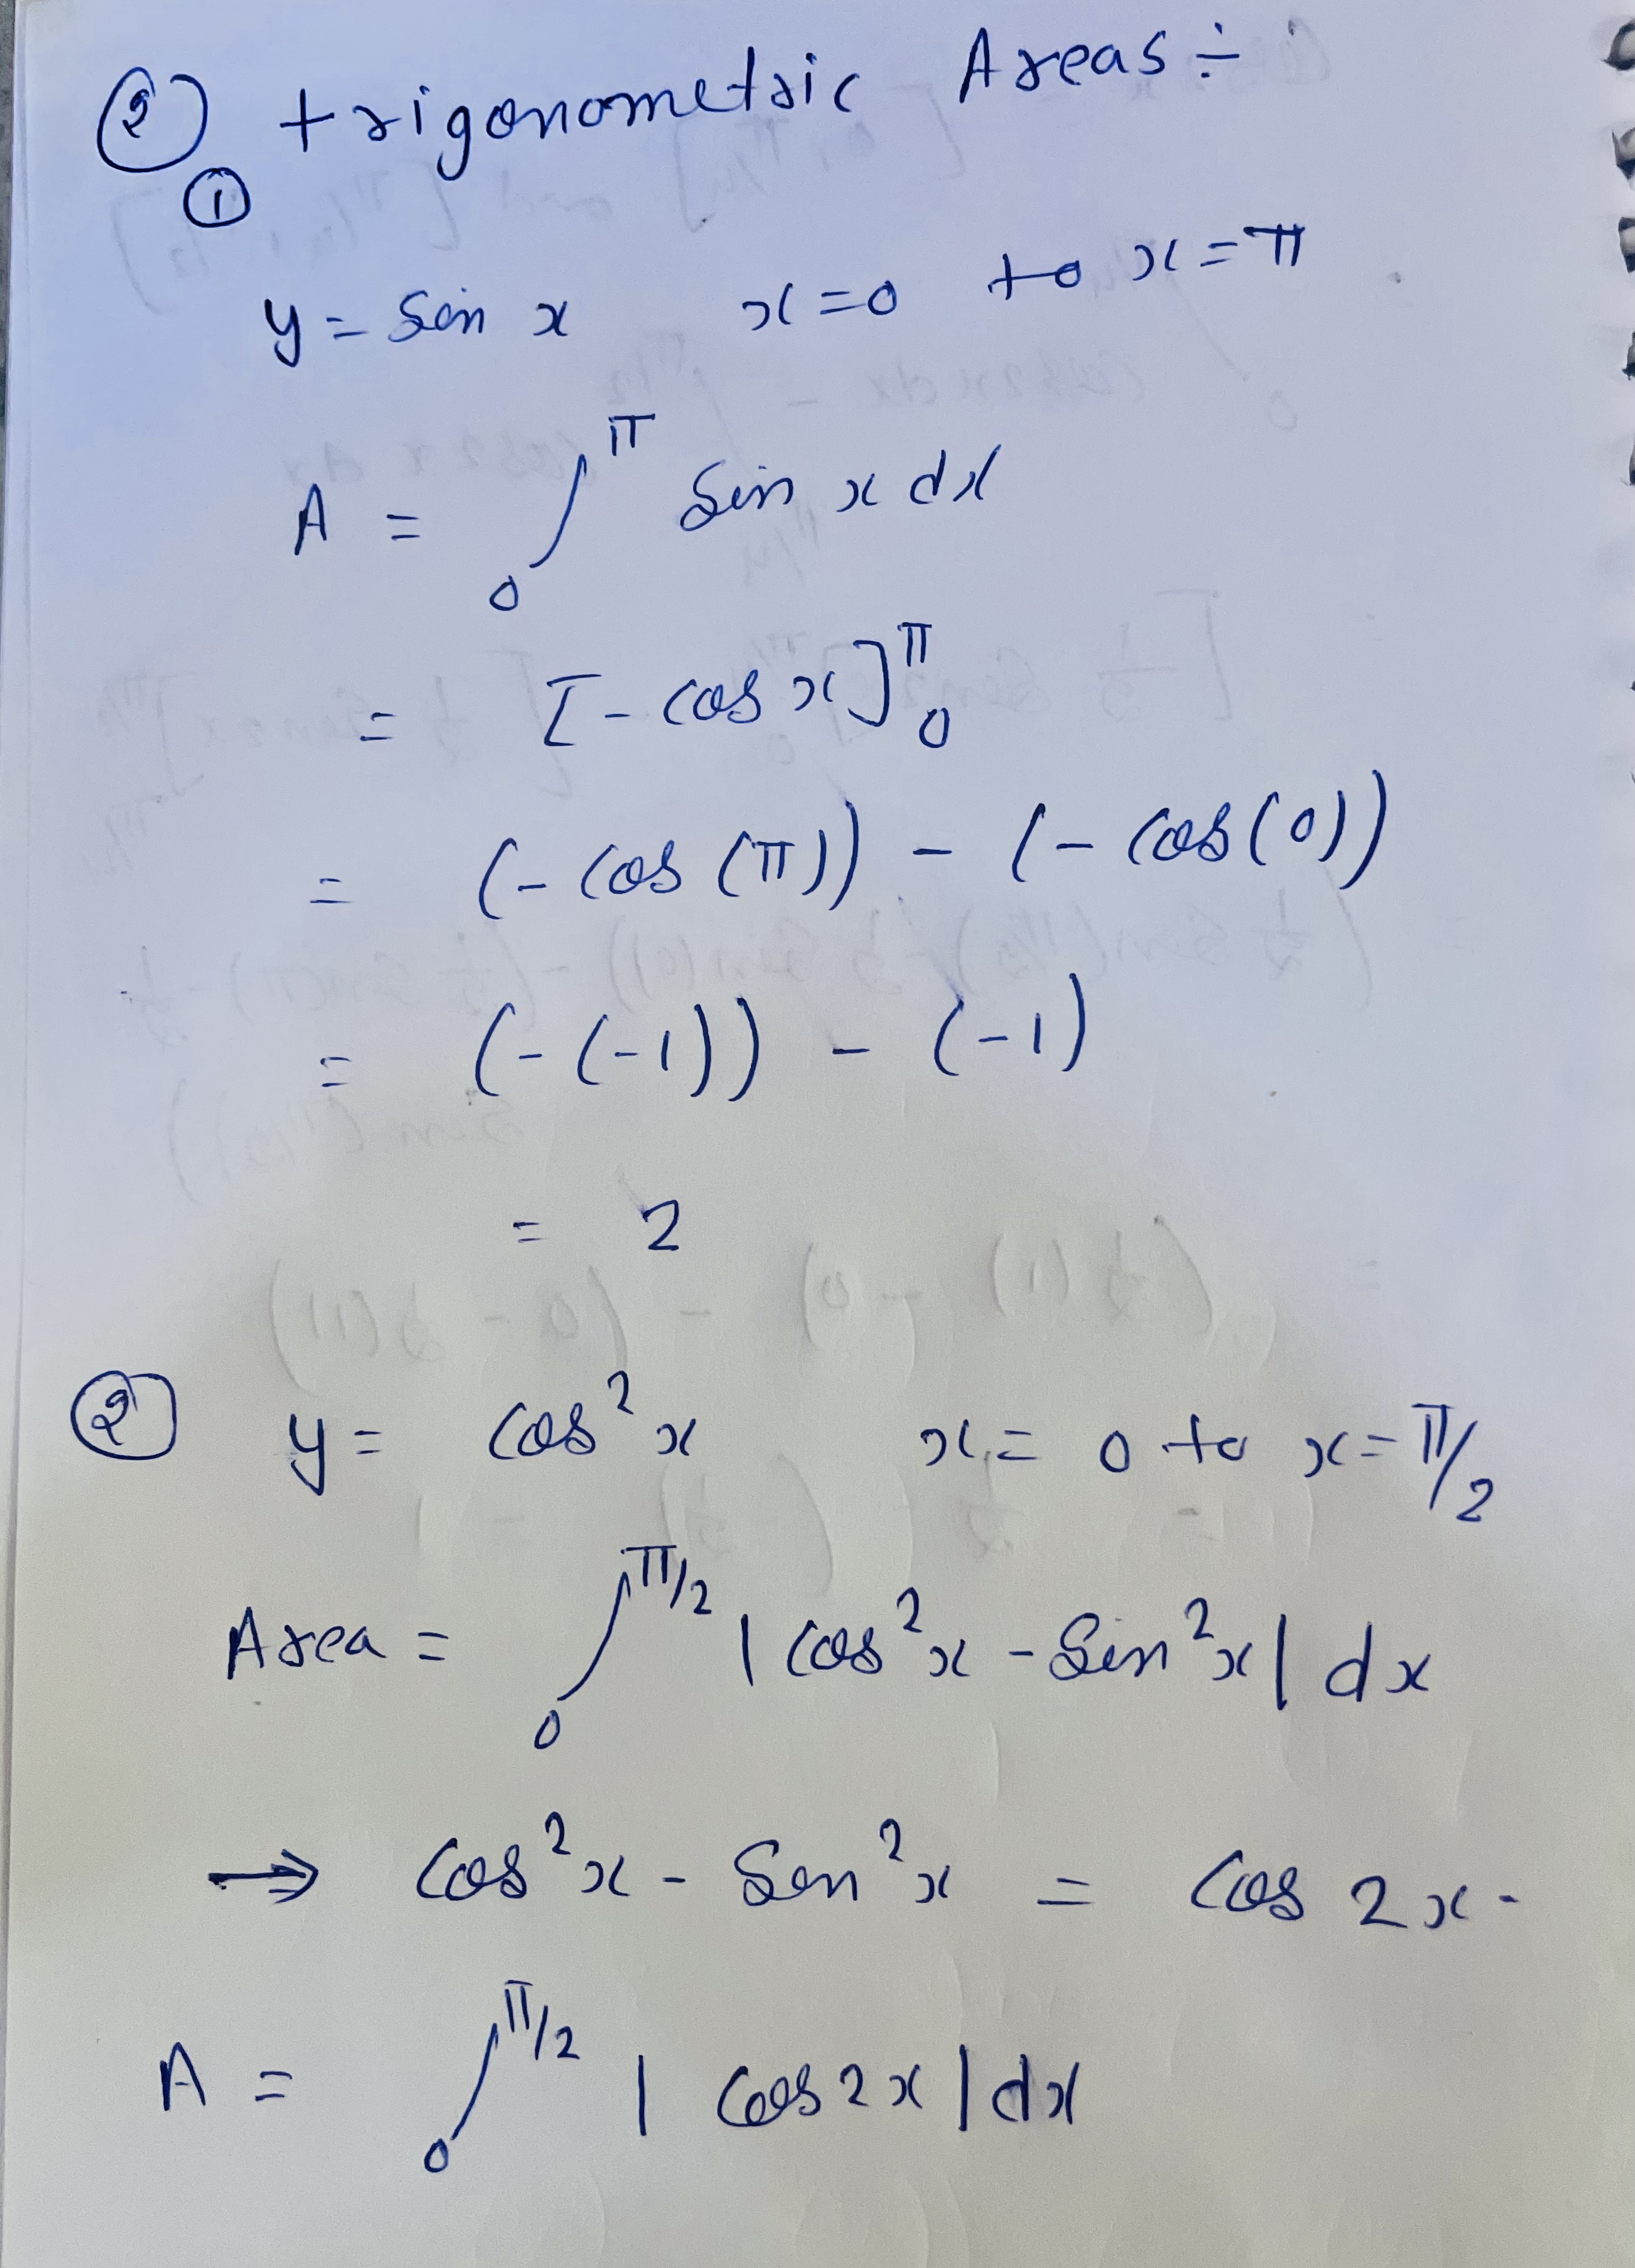 ② trigonometric Areas ÷
①
y = Sin x x = 0 to x = π
A = ∫₀^π Sin x dx
= [- cos x]₀^π
= (- cos (π)) - (- cos (0))
= (- (-1)) - (-1)
= 2
② y = cos²x x = 0 to x = π/2
Area = ∫₀^π/2 | cos²x - Sin²x | dx
→ cos²x - Sin²x = cos 2x .
A = ∫₀^π/2 | cos 2x | dx